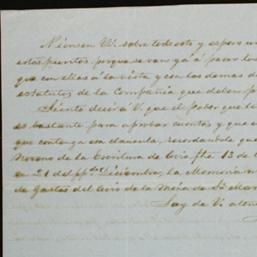 Piensen VV. sobre todo esto y espero un
estos puntos, porque se van ya á pasar los
que con ellas á la vista y con las demas d
estatutos de la Compañia que deben p
Siento decir á V. que el poder que t
es bastante para aprobar cuentas y que e
que contenga esa clausula, recordandole q
Noveno de la Escritura de Cia. fha. 13 de
en 21 del pp.do Diciembre, la Memoria
de Gastos del año de la Mina de Sta. Mar
Soy de V. aten